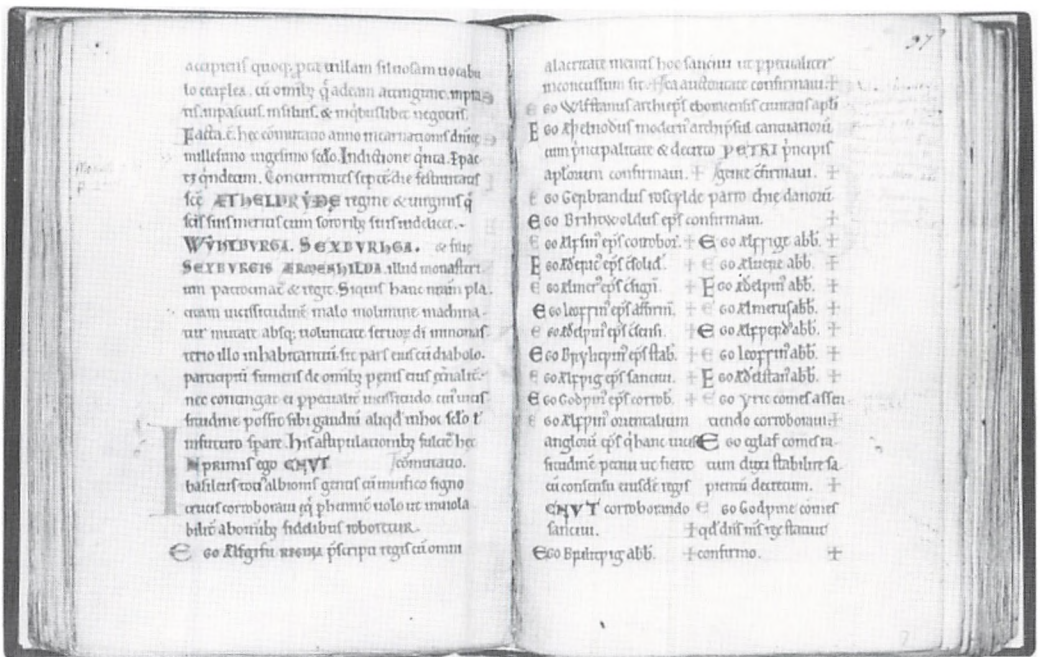 accipiens quoq; p̄ea uillam silnosam uocabu
lo ceaflea, cū omib; q̄ adeam attingunt, inpra
tis, inpascuis, insiluis, & inq̄buslibet negociis.
Facta. ē. hec cōmutatio anno incarnationis dnīcę
millesimo uigesimo sc̄do. Indictione q̄nta. Epac
tę q̄ndecim. Concurrentes septē. die festiuitatis
sc̄ę ÆTHELDRYÐE regine & uirginis q̄
sc̄īs suis meritis cum sororib; suis uidelicet.
WYHTBVRGA. SEXBVRHGA. & filię
SEXBVRGIS ÆRMENHILDA. illud monasteri
um patrocinat̄ & regit. Siquis hanc nr̄am pla
citam uicissitudinē malo molimine machina
tur mutare absq; uoluntate seruoꝝ dī inmonas
terio illo inhabitantiū. sit pars eius cū diabolo.
participiū sumens de omib; penis eius
nec contingat ei ppetualit̄ uicissitudo cui uicis
situdine possit sibi gaudiū aliqd̄ inhoc sc̄lo ł
infuturo sp̄are. his astipulationib; fulcit̄ hęc
IN primis ego CNVT cōmutatio.
basileus toti᷒ albionis gentis cū mirifico signo
crucis corroboraui
bilit̄ abomib; fidelibus roboretur.
Ego Ælfgifu REGINA p̄scripta regis cū omni
37
alacritate mentis hoc sanciui ut ppetualiter
inconcussum sit. + sc̄a auctoritate confirmaui. +
Ego Wlfstanus archiep̄s eboracensis ciuitatis apl̄i
Ego Æþelnoðus modern᷒ archip̄sul cantuarioꝝ
cum p̄ncipalitate & decreto PETRI p̄ncipis
apl̄orum confirmaui. + gente c̄firmaui. +
Ego Gerbrandus roscylde parro chie danoꝝ
Ego Brihtwoldus ep̄s confirmaui. +
Ego Ælfsin᷒ ep̄s corrobor̄. + Ego Ælfsige abb̄. +
Ego Æðeric᷒ ep̄s c̄solid̄. + Ego Ælfwine abb̄. +
Ego Ælmer᷒ ep̄s c̄sign̄. + Ego Æðelwin᷒ abb̄. +
Ego leofsin᷒ ep̄s affirm̄. + Ego Ælmerus abb̄. +
Ego Æðelwin᷒ ep̄s c̄sensi. + Ego Ælfwerd᷒ abb̄. +
Ego Bryhtwin᷒ ep̄s stab̄. + Ego leofsin᷒ abb̄. +
Ego Ælfwig ep̄s sanciui. + Ego Æðelstan᷒ abb̄. +
Ego Godwin᷒ ep̄s corrob̄. + Ego yric comes assen
Ego Ælfwin᷒ orientalium tiendo corroboraui. +
angloꝝ ep̄s q̄ hanc uicis Ego eglaf comes ra
situdinē petiui ut fieret tum duxi stabilire sa
cū consensu eiusdē regis pientū decretum. +
CNVT corroborando Ego Godwine comes
sanciui. + qd̄ dn̄s m̄s rex statuit
Ego Bryhtwig abb̄. + confirmo. +